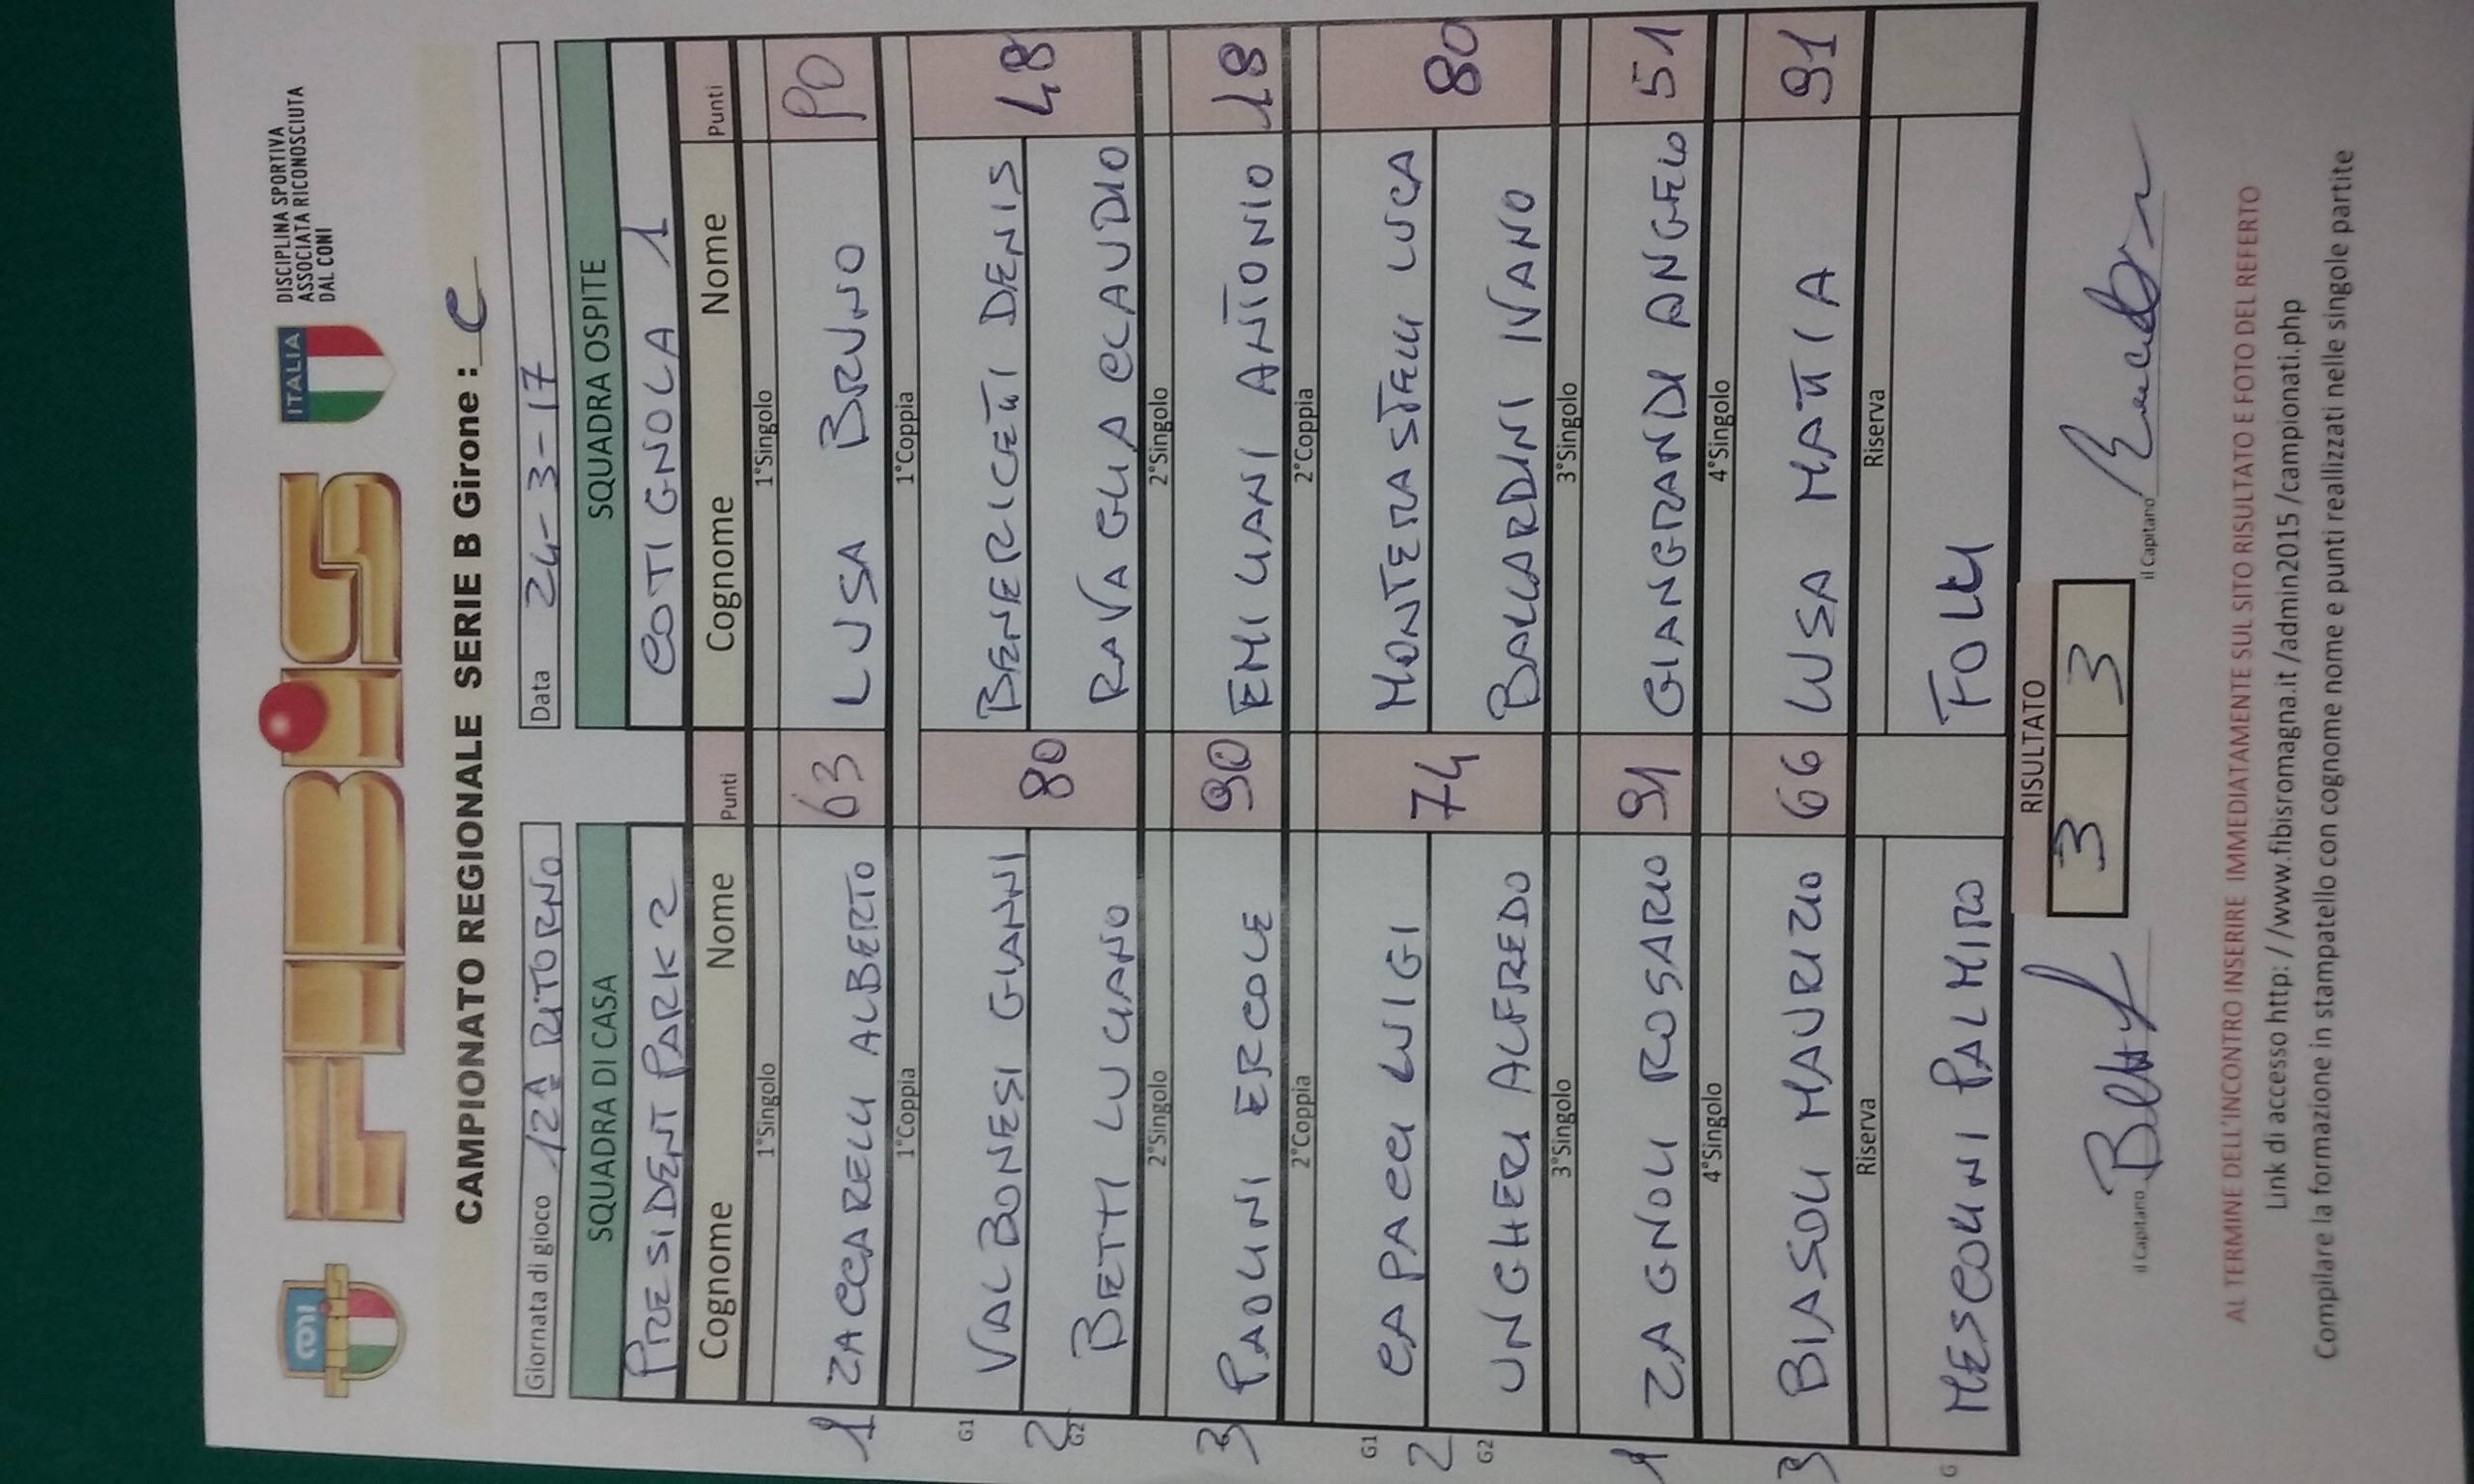 CONI
FIBiS
ITALIA
DISCIPLINA SPORTIVA
ASSOCIATA RICONOSCIUTA
DAL CONI
CAMPIONATO REGIONALE SERIE B Girone : C
Giornata di gioco 12ª RITORNO Data 24-3-17
SQUADRA DI CASA SQUADRA OSPITE
PRESIDENT PARK 2 COTIGNOLA 1
Cognome Nome Punti Cognome Nome Punti
1°Singolo 1°Singolo
1 ZACCARELLI ALBERTO 63 LUSA BRUNO 90
1°Coppia 1°Coppia
G1 VALBONESI GIANNI BENERICETTI DENIS
2 80 48
G2 BETTI LUCIANO RAVAGLIA CLAUDIO
2°Singolo 2°Singolo
3 PAOLINI ERCOLE 90 EMILIANI ANTONIO 18
2°Coppia 2°Coppia
G1 CAPACCI LUIGI MONTERASTELLI LUCA
2 74 80
G2 UNGHERI ALFREDO BALLARDINI IVANO
3°Singolo 3°Singolo
1 ZAGNOLI ROSARIO 91 GIANGRANDI ANGELO 51
4°Singolo 4°Singolo
3 BIASOLI MAURIZIO 66 LUSA MATTIA 91
Riserva Riserva
G MESCOLINI PALMIRO FOLLI
RISULTATO
3 3
il Capitano il Capitano
AL TERMINE DELL'INCONTRO INSERIRE IMMEDIATAMENTE SUL SITO RISULTATO E FOTO DEL REFERTO
Link di accesso http: //www.fibisromagna.it /admin2015 /campionati.php
Compilare la formazione in stampatello con cognome nome e punti reallizzati nelle singole partite